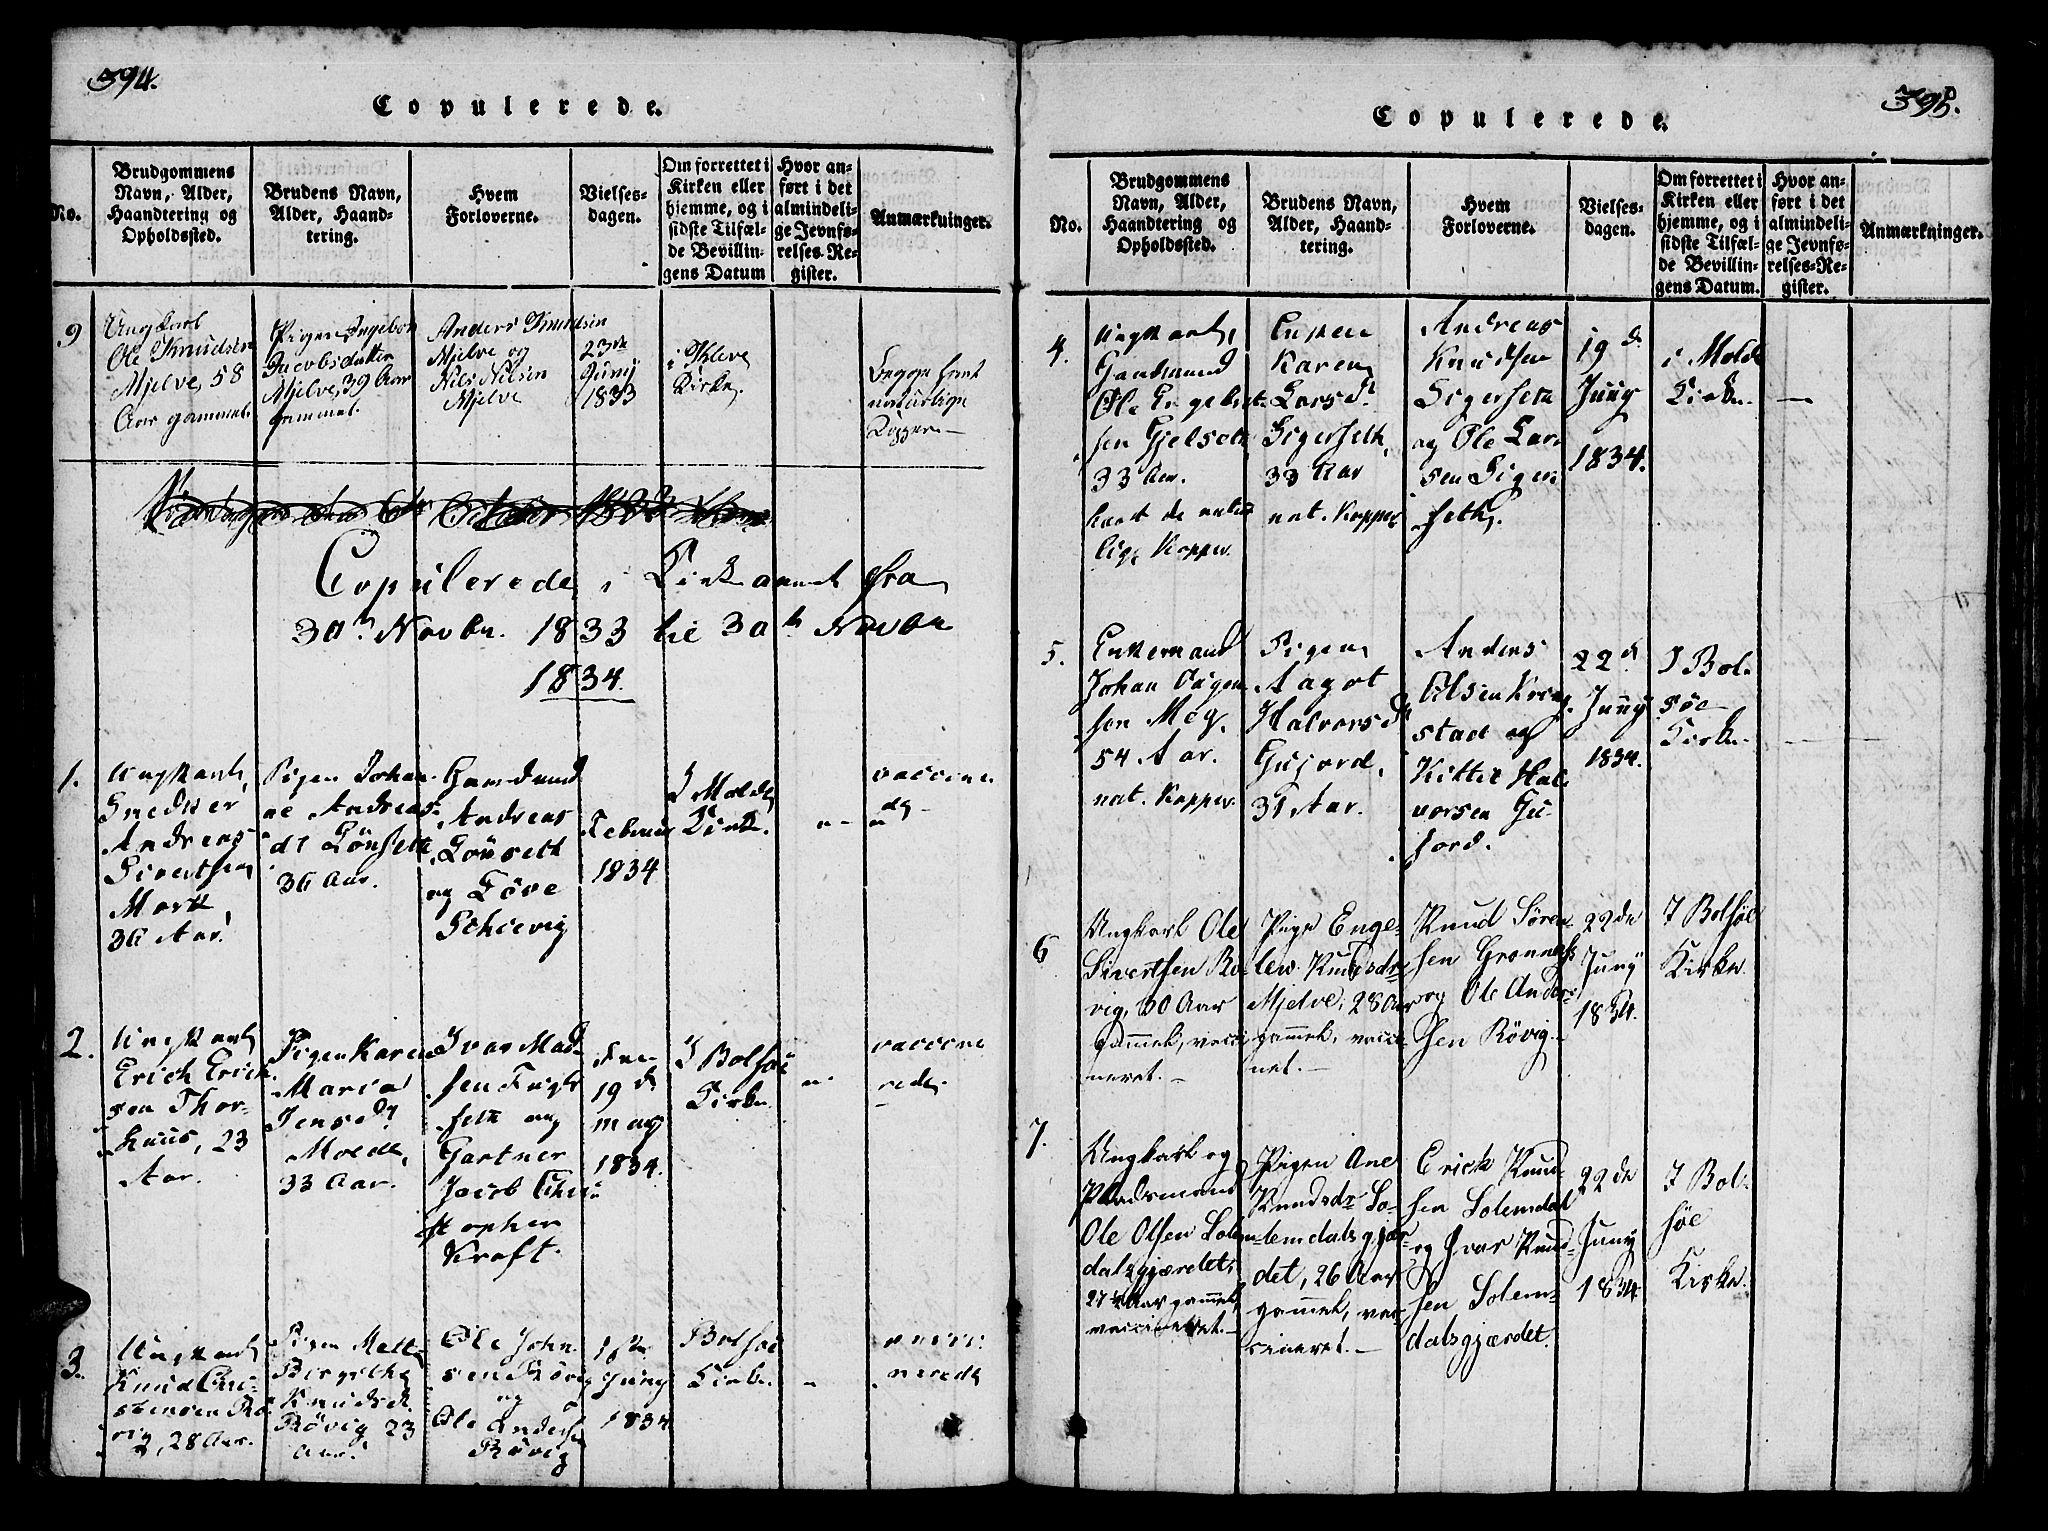 394.
Copulerede.
No.
Brudgommens
Navn, Alder,
Haandtering og
Opholdssted.
Brudens Navn,
Alder, Haand-
tering.
Hvem
Forloverne.
Vielses-
dagen.
Om forrettet i
Kirken eller
hjemme, og i
sidste Tilfæl-
de Bevillin-
gens Datum
Hvor an-
ført i det
almindeli-
ge Jevnfø-
relses-Re-
gister.
Anmærkninger.
9
Ungkarl
Ole Knudsen
Mjelve, 58
Aar gammel.
Pigen Ingebor
Jacobsdatter
Mjelve, 39 Aar
gammel.
Anders Knudsen
Mjelve og
Nils Nilsen
Mjelve
23de
Juny
1833
i Kleve
Kirke.
Begge havt
naturlige
Kopper.
Copulerede i Kirkeaaret fra
30te Novbr. 1833 til 30te Novbr
1834.
1.
Ungkarl,
Snedker
Andreas
Sivertsen
Mork,
36 Aar.
Pigen Johan-
ne Andreas-
dt Lönseth
36 Aar.
Gaardmand
Andreas
Lönseth
og Töve
Schievig
Februar
1834
I Molde
Kirke.
vaccine-
de
2.
Ungkarl
Erich Erich-
sen Thor-
huus, 23
Aar.
Pigen Karen
Maria
Jensedt
Molde,
33 Aar.
Ivar Mad-
sen Fugl-
seth og
Gartner
Jacob Chri-
stopher
Kroft.
Den
19 d
May
1834.
I Bolsöe
Kirke
vaccine-
rede
3.
Ungkarl
Knud Chri-
stensen Rö-
vig, 28 Aar.
Pigen Mette
Birgithe
Knudsd.
Rövig 23
Aar.
Ole John-
sen Rövig
og
Ole Anders
Rövig
1ste
Juny
1834
Bolsöe
Kirke
vacci-
nerede
395.
Copulerede.
No.
Brudgommens
Navn, Alder,
Haandtering og
Opholdssted.
Brudens Navn,
Alder, Haand-
tering.
Hvem
Forloverne.
Vielses-
dagen.
Om forrettet i
Kirken eller
hjemme, og i
sidste Tilfæl-
de Bevillin-
gens Datum.
Hvor an-
ført i det
almindeli-
ge Jevnfø-
relses-Re-
gister.
Anmærkninger.
4.
Ungkarl,
Gaardmand
Ole Engebret-
sen Gjelseth
33 Aar.
havt de natur
lige Kopper.
Enken
Karen
Larsdt
Sigerseth,
33 Aar
nat. Kopper
Andreas
Knudsen
Sigerseth
og Ole Lar-
sen Siger-
seth.
19 d.
Juny
1834.
i Molde
Kirke.
5.
Enkemand
Johan Jörgen-
sen Meg,
54 Aar.
nat. Kopper.
Pigen
Aagot
Halvorsd
Gujord,
31 Aar.
Anders
Olsen Kring-
stad og
Kittil Hal-
vorsen Gu-
jord.
22 d
Juny
1834.
I Bol-
söe
Kirke.
6
Ungkarl Ole
Sivertsen Rö-
vig, 30 Aar
gammel, vacci-
neret.
Pige Enge-
lew Knudsdr
Mjelve, 28 Aar
gammel, vacci-
net.
Knud Sören-
sen Grønnæss
og Ole Ander-
sen Rövig.
22de
Juny
1834.
I Bolsöe
Kirke.
7.
Ungkarl og
Pladsmand
Ole Olsen Solem-
dalsgjærdet,
27 ½ Aar gammel,
vaccineret.
Pigen Ane
Knudsdr So-
lemdalsgjær-
det, 26 Aar
gammel, vac-
cineret.
Erick Knud-
sen Solemsdal
og Ivar Knud-
sen Solem-
dalsgjærdet.
22de
Juny
1834.
I Bol-
söe
Kirke.